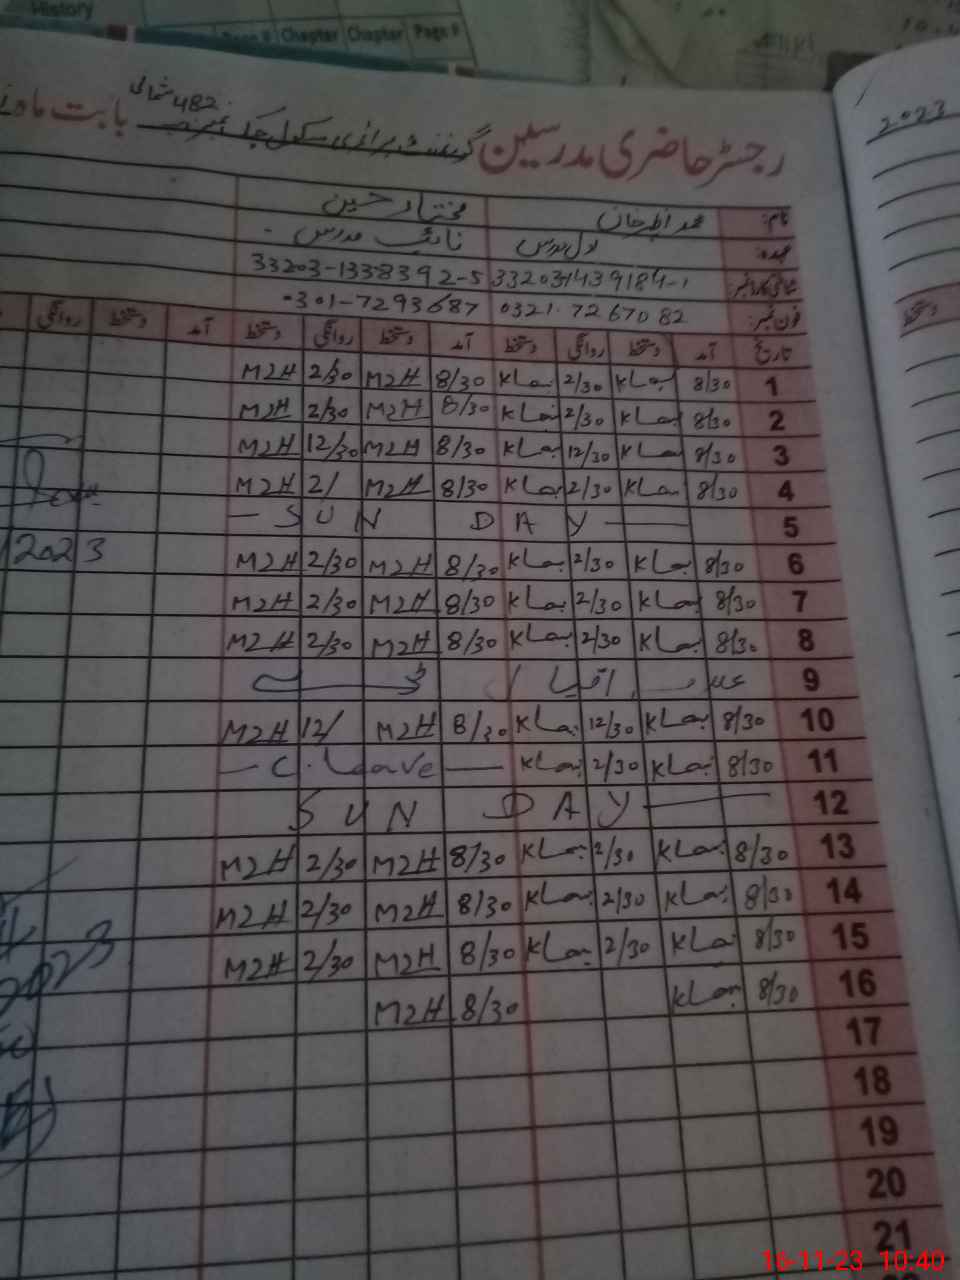 History
Page # Chapter Chapter Page #
2023
رجسٹر حاضری مدرسین گورنمنٹ پرائمری سکول چک نمبر 482 شمالی بابت ماہ
نام: محمد اظہر خان مختیار حسین
عہدہ: اول مدرس نائب مدرس
شناختی کارڈ نمبر: 33203-1439184-1 33203-1338392-5
فون نمبر: 0321-7267082 0301-7293687
تاریخ آمد دستخط روانگی دستخط آمد دستخط روانگی دستخط آمد دستخط روانگی
1 8/30 2/30 8/30 M2H 2/30 M2H
2 8/30 2/30 8/30 M2H 2/30 M2H
3 8/30 12/30 8/30 M2H 12/30 M2H
4 8/30 2/30 8/30 M2H 2/ M2H
5 SUN DAY
6 8/30 2/30 8/30 M2H 2/30 M2H
2023
7 8/30 2/30 8/30 M2H 2/30 M2H
8 8/30 2/30 8/30 M2H 2/30 M2H
9 اقبال ڈے
10 8/30 12/30 8/30 M2H 12/ M2H
11 8/30 2/30 C. Leave
12 SUN DAY
13 8/30 2/30 8/30 M2H 2/30 M2H
14 8/30 2/30 8/30 M2H 2/30 M2H
15 8/30 2/30 8/30 M2H 2/30 M2H
2023
16 8/30 8/30 M2H
17
18
19
20
21
16-11-23 10:40